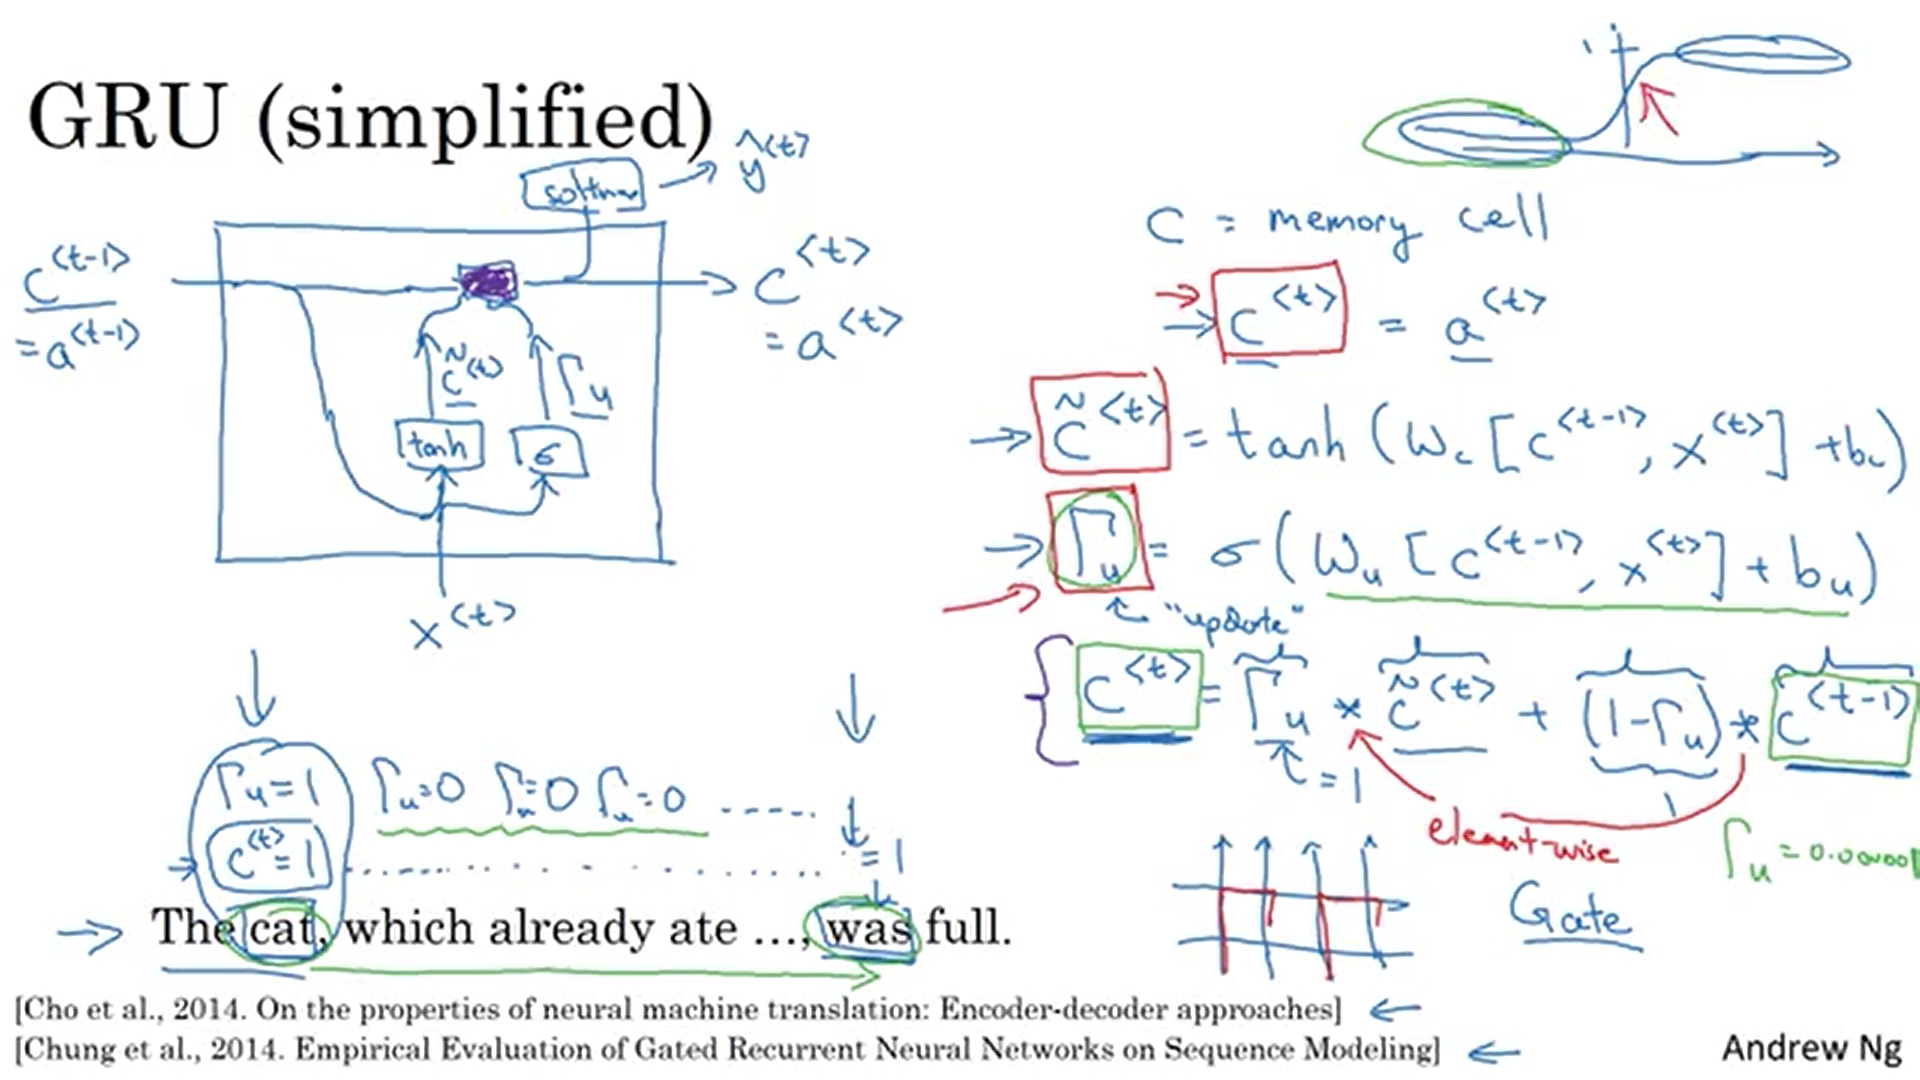 GRU (simplified)
softmax → ŷ<t>
c<t-1>
= a<t-1>
c<t>
= a<t>
c̃<t>
Γu
tanh
σ
x<t>
C = memory cell
c<t> = a<t>
c̃<t> = tanh (Wc [c<t-1>, x<t>] + bc)
Γu = σ (Wu [c<t-1>, x<t>] + bu)
"update"
c<t> = Γu * c̃<t> + (1-Γu) * c<t-1>
= 1
element-wise
Gate
Γu=1 Γu=0 Γu=0 Γu=0 .....
c<t>=1 ..... =1
The cat, which already ate ..., was full.
[Cho et al., 2014. On the properties of neural machine translation: Encoder-decoder approaches] ←
[Chung et al., 2014. Empirical Evaluation of Gated Recurrent Neural Networks on Sequence Modeling] ←
Andrew Ng